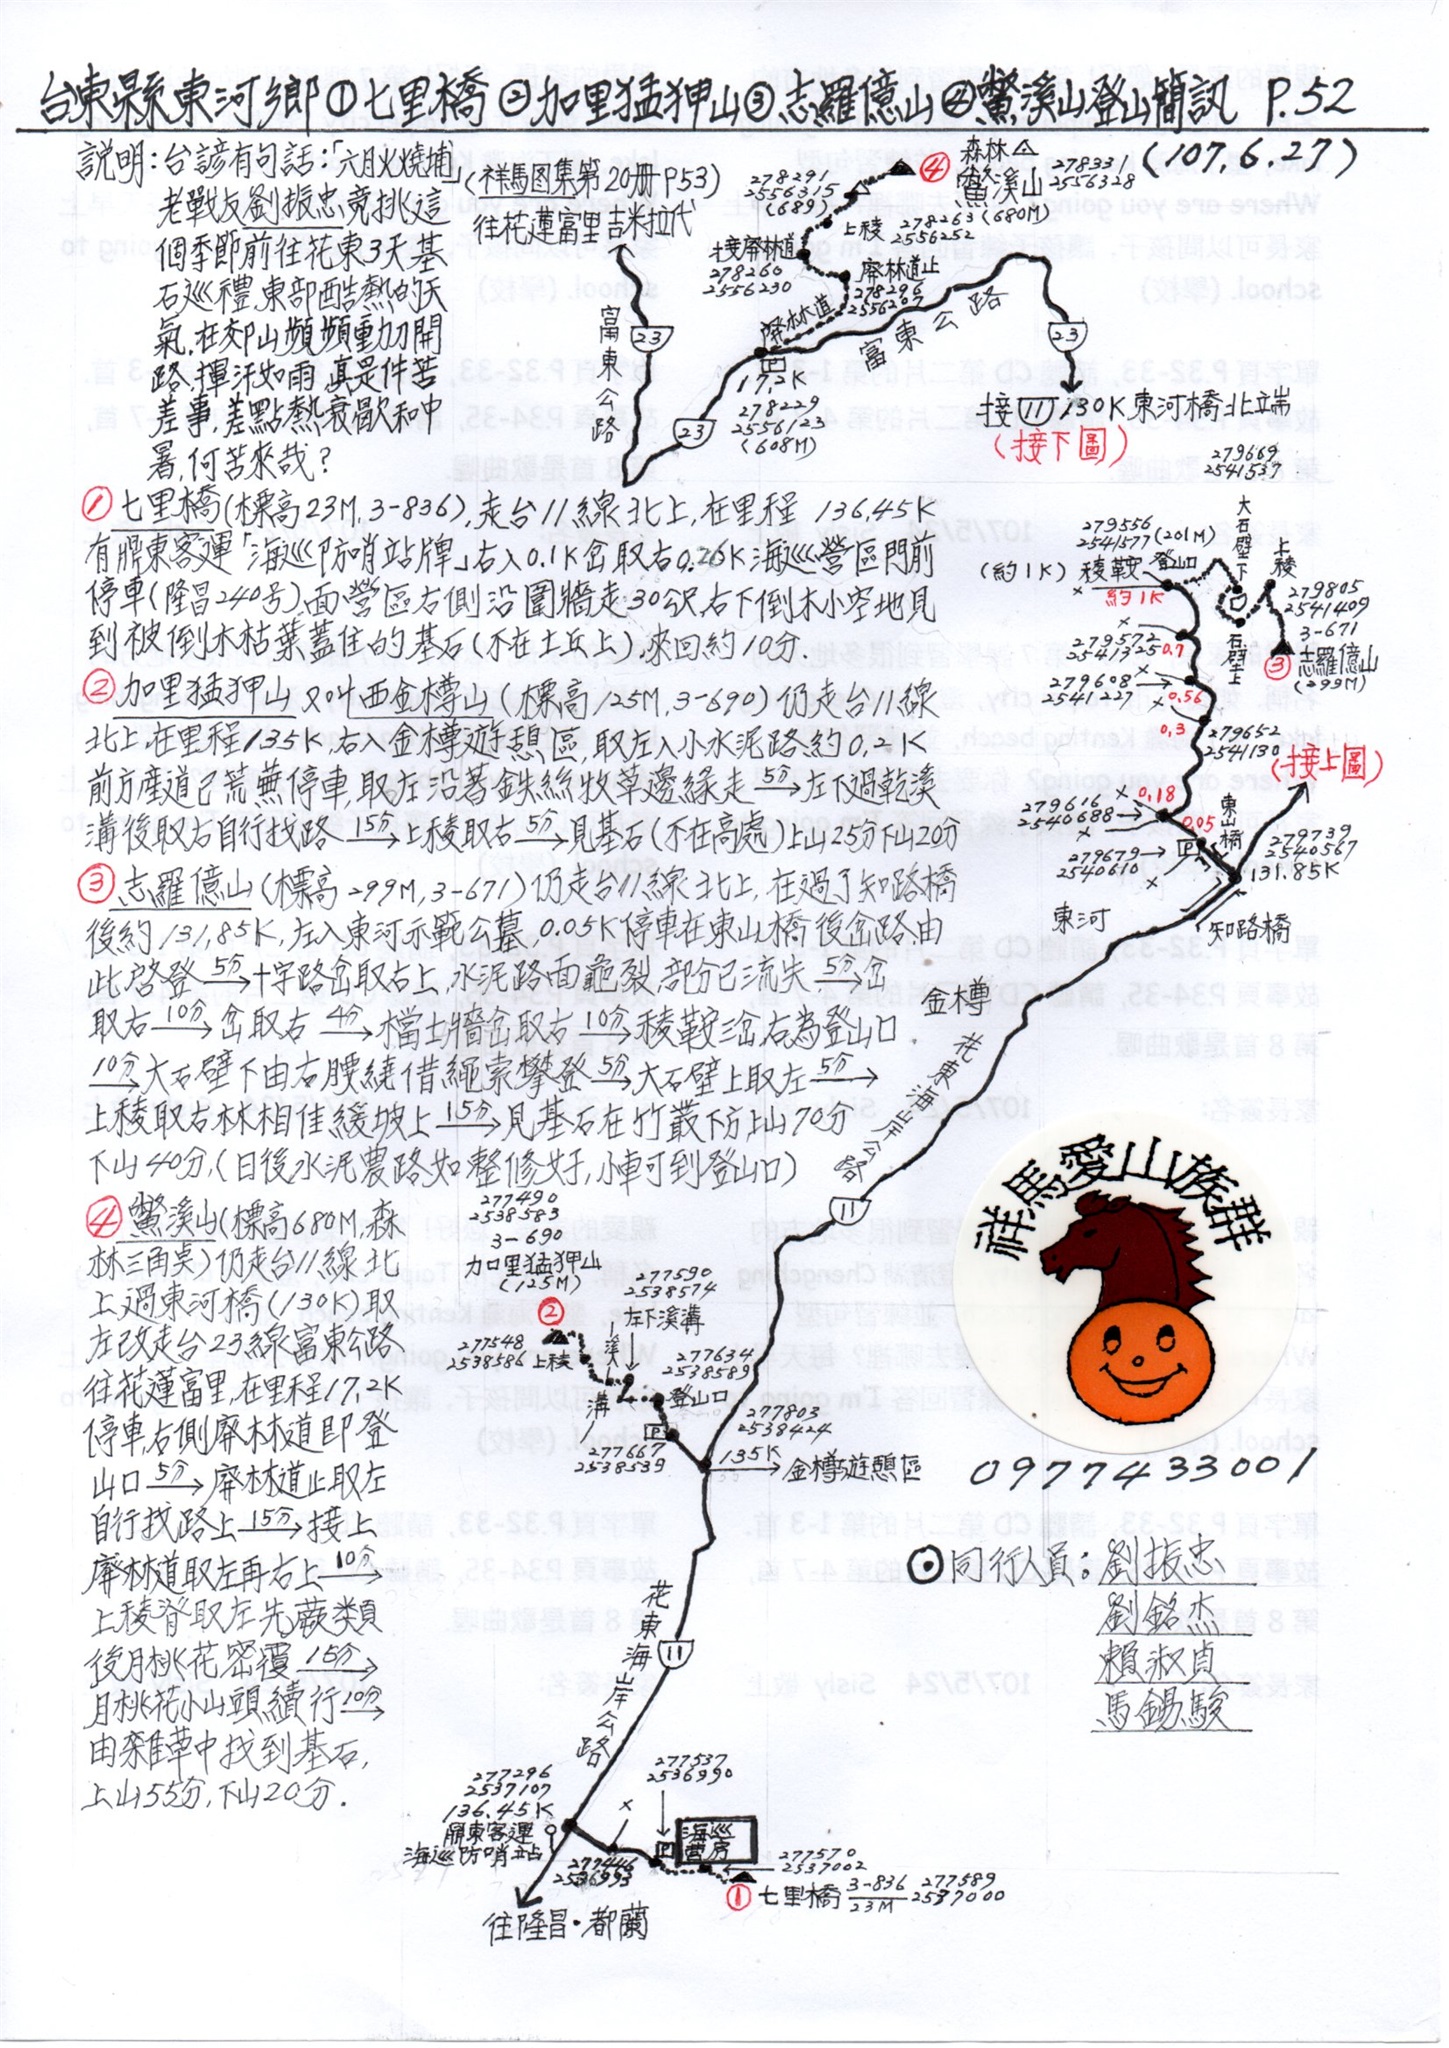 台東縣東河鄉①七里橋②加里猛狎山③志羅億山④鱉溪山登山簡訊 P.52
(107.6.27)
說明:台諺有句話:「六月火燒埔」
老戰友劉振忠竟挑這
個季節前往花東3天基
石巡禮,東部酷熱的天
氣,在郊山頻頻動刀開
路,揮汗如雨,真是件苦
差事,差點熱衰歇和中
暑,何苦來哉?
(祥馬图集第20册P53)
往花蓮富里吉米拉代
富東公路
23
23
278291
2556315
(689)
④
森林△
鱉溪山
278331
2556328
(680M)
上稜
278263
2556252
接廢林道
278260
2556230
廢林道止
278296
2556269
廢林道
富東公路
17.2K
278229
2556123
(608M)
23
接11 130K東河橋北端
(接下圖)
①七里橋(標高23M,3-836),走台11線北上,在里程 136.45K
有鼎東客運「海巡防哨站牌」右入0.1K岔取右0.26K海巡營區門前
停車(隆昌240号),面營區右側沿圍牆走30公尺,右下倒木小空地見
到被倒木枯葉蓋住的基石(不在土丘上),來回約10分.
②加里猛狎山又叫西金樽山(標高125M,3-690)仍走台11線
北上,在里程135K,右入金樽遊憩區,取左入小水泥路約0.2K
前方產道已荒蕪停車,取左沿著鉄絲網牧草邊緣走 5分→左下過乾溪
溝後取右自行找路 15分→上稜取右 5分→見基石(不在高處)上山25分下山20分
③志羅億山(標高299M,3-671)仍走台11線北上,在過了知路橋
後約131.85K,左入東河示範公墓,0.05K停車在東山橋後岔路,由
此啓登 5分→十字路岔取右上,水泥路面龜裂,部分已流失 5分→岔
取右 10分→岔取右 4分→檔土牆岔取右 10分→稜鞍三岔右為登山口
10分→大石壁下由右腰繞借繩索攀登 5分→大石壁上取左 5分→
上稜取右林相佳緩坡上 15分→見基石在竹叢下方,上山70分
下山40分,(日後水泥農路如整修好,小車可到登山口)
④鱉溪山(標高680M,森
林三角点)仍走台11線北
上過東河橋(130K)取
左改走台23線富東公路
往花蓮富里,在里程17.2K
停車,右側廢林道即登
山口 5分→廢林道止取左
自行找路上 15分→接上
廢林道取左再右上 10分→
上稜脊取左先蕨類
後月桃花密覆 15分→
月桃花小山頭續行 10分→
由雜草中找到基石,
上山55分,下山20分.
279669
2541537
大石壁下
279556
2541577
(201M)
登山口
(約1K)
稜鞍
約1K
上稜
279805
2541409
3-671
③志羅億山
(299M)
石壁上
279572
2541325
0.7
279608
2541227
0.56
0.3
279652
2541130
(接上圖)
0.18
279616
2540688
0.05
東橋
279679
2540610
P
279739
2540567
131.85K
東河
知路橋
金樽
花東海岸公路
11
277490
2538583
3-690
加里猛狎山
(125M)
②
277590
2538574
左下溪溝
277548
2538586
上稜
溪溝
277634
2538589
登山口
P
277667
2538539
277803
2538424
135K
金樽遊憩區
祥馬愛山族群
0977433001
⊙同行人員:劉振忠
劉銘杰
賴淑貞
馬錫駿
花東海岸公路
11
277296
2537107
136.45K
鼎東客運
海巡防哨站
277537
2536990
P
海巡營房
277446
2536993
277570
2537002
①七里橋
3-836
23M
277589
2537000
往隆昌·都蘭